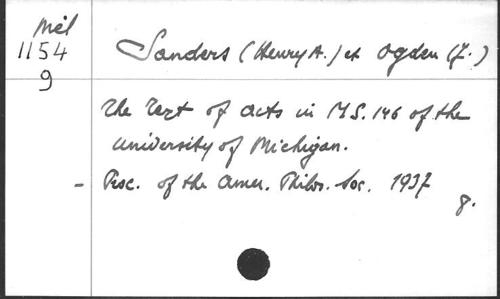 Mél
1154
9
Sanders (Henry A.) et Ogden (J.)
The Text of Acts in MS. 146 of the
University of Michigan.
- Proc. of the Amer. Philos. Soc. 1937
8.